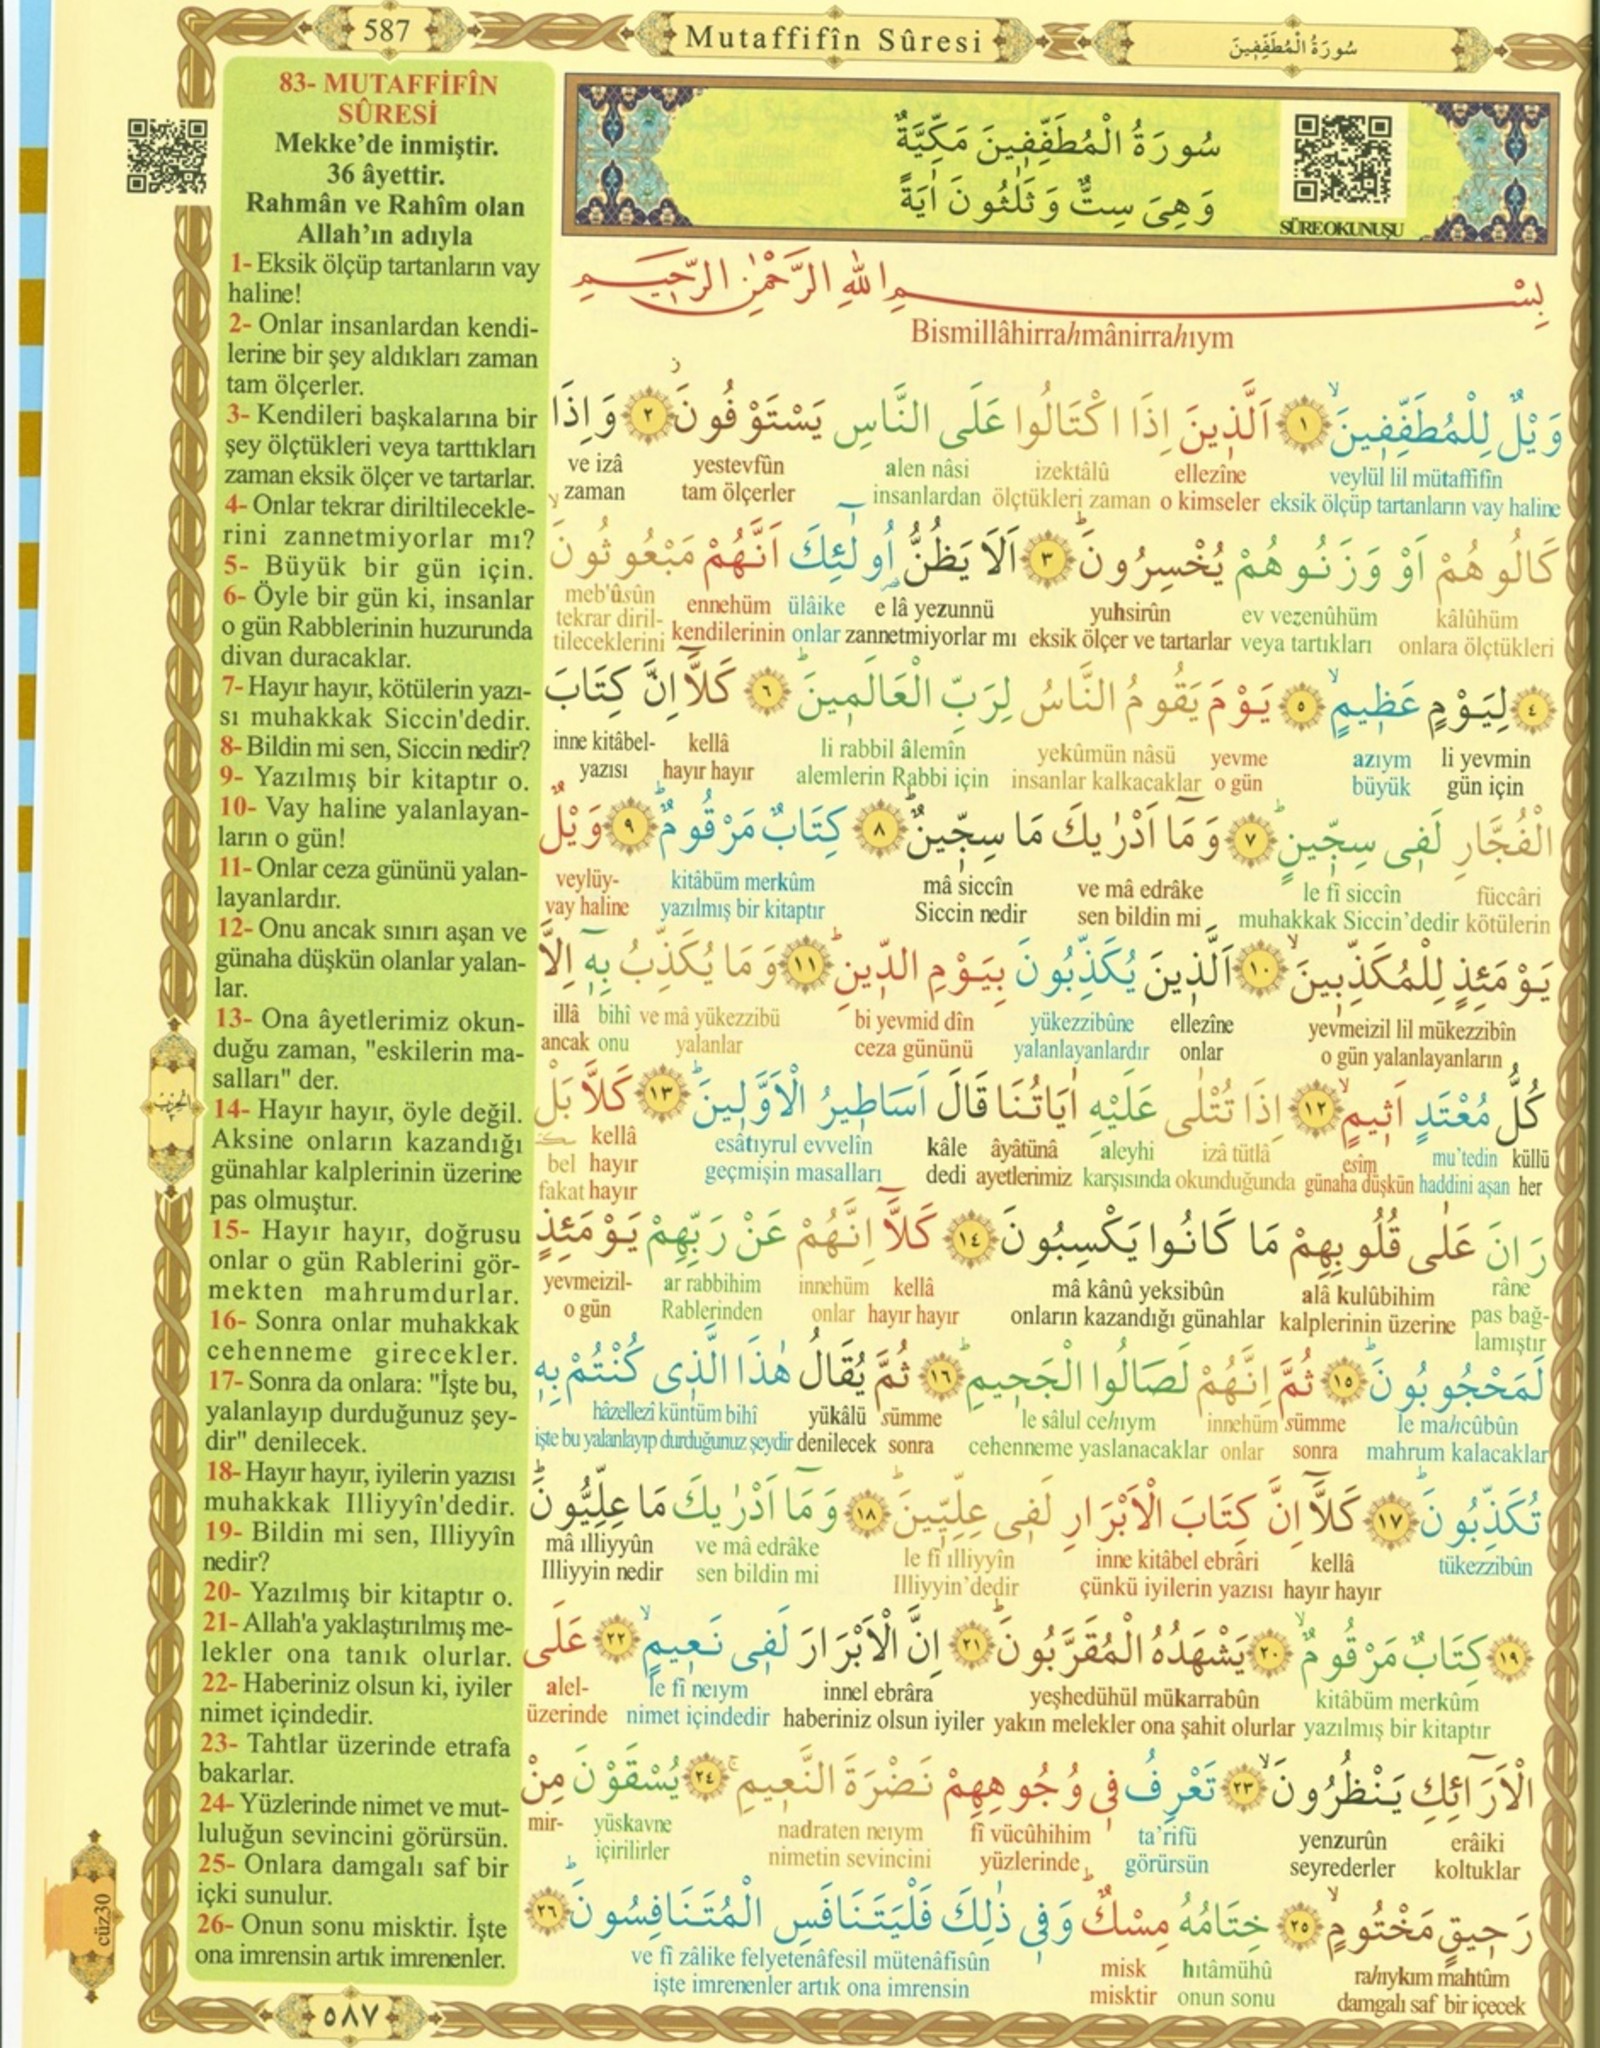 587
Mutaffifîn Sûresi
سُورَةُ الْمُطَفِّفِينَ
83- MUTAFFİFÎN
SÛRESİ
Mekke'de inmiştir.
36 âyettir.
Rahmân ve Rahîm olan
Allah'ın adıyla
1- Eksik ölçüp tartanların vay
haline!
2- Onlar insanlardan kendi-
lerine bir şey aldıkları zaman
tam ölçerler.
3- Kendileri başkalarına bir
şey ölçtükleri veya tarttıkları
zaman eksik ölçer ve tartarlar.
4- Onlar tekrar diriltilecekle-
rini zannetmiyorlar mı?
5- Büyük bir gün için.
6- Öyle bir gün ki, insanlar
o gün Rabblerinin huzurunda
divan duracaklar.
7- Hayır hayır, kötülerin yazı-
sı muhakkak Siccin'dedir.
8- Bildin mi sen, Siccin nedir?
9- Yazılmış bir kitaptır o.
10- Vay haline yalanlayan-
ların o gün!
11- Onlar ceza gününü yalan-
layanlardır.
12- Onu ancak sınırı aşan ve
günaha düşkün olanlar yalan-
lar.
13- Ona âyetlerimiz okun-
duğu zaman, "eskilerin ma-
salları" der.
14- Hayır hayır, öyle değil.
Aksine onların kazandığı
günahlar kalplerinin üzerine
pas olmuştur.
15- Hayır hayır, doğrusu
onlar o gün Rablerini gör-
mekten mahrumdurlar.
16- Sonra onlar muhakkak
cehenneme girecekler.
17- Sonra da onlara: "İşte bu,
yalanlayıp durduğunuz şey-
dir" denilecek.
18- Hayır hayır, iyilerin yazısı
muhakkak Illiyyîn'dedir.
19- Bildin mi sen, Illiyyîn
nedir?
20- Yazılmış bir kitaptır o.
21- Allah'a yaklaştırılmış me-
lekler ona tanık olurlar.
22- Haberiniz olsun ki, iyiler
nimet içindedir.
23- Tahtlar üzerinde etrafa
bakarlar.
24- Yüzlerinde nimet ve mut-
luluğun sevincini görürsün.
25- Onlara damgalı saf bir
içki sunulur.
26- Onun sonu misktir. İşte
ona imrensin artık imrenenler.
سُورَةُ الْمُطَفِّفِينَ مَكِّيَّةٌ
وَهِيَ سِتٌّ وَثَلٰثُونَ اٰيَةً
SÛRE OKUNUŞU
بِسْمِ اللّٰهِ الرَّحْمٰنِ الرَّحِيمِ
Bismillâhirrahmânirrahıym
وَيْلٌ لِلْمُطَفِّفِينَ ﴿١﴾ اَلَّذِينَ اِذَا اكْتَالُوا عَلَى النَّاسِ يَسْتَوْفُونَ ﴿٢﴾ وَاِذَا
veylül lil mütaffifîn ellezîne izektâlû alen nâsi yestevfûn ve izâ
eksik ölçüp tartanların vay haline o kimseler ölçtükleri zaman insanlardan tam ölçerler zaman
كَالُوهُمْ اَوْ وَزَنُوهُمْ يُخْسِرُونَ ﴿٣﴾ اَلَا يَظُنُّ اُولٰٓئِكَ اَنَّهُمْ مَبْعُوثُونَ
kâlûhüm ev vezenûhüm yuhsirûn e lâ yezunnü ülâike ennehüm meb'ûsûn
onlara ölçtükleri veya tartıkları eksik ölçer ve tartarlar zannetmiyorlar mı onlar kendilerinin tekrar diril-
tileceklerini
﴿٤﴾ لِيَوْمٍ عَظِيمٍ ﴿٥﴾ يَوْمَ يَقُومُ النَّاسُ لِرَبِّ الْعَالَمِينَ ﴿٦﴾ كَلَّٓا اِنَّ كِتَابَ
li yevmin azıym yevme yekûmün nâsü li rabbil âlemîn kellâ inne kitâbel-
gün için büyük o gün insanlar kalkacaklar alemlerin Rabbi için hayır hayır yazısı
الْفُجَّارِ لَفِي سِجِّينٍ ﴿٧﴾ وَمَٓا اَدْرٰيكَ مَا سِجِّينٌ ﴿٨﴾ كِتَابٌ مَرْقُومٌ ﴿٩﴾ وَيْلٌ
füccâri le fî siccîn ve mâ edrâke mâ siccîn kitâbüm merkûm veylüy-
kötülerin muhakkak Siccin'dedir sen bildin mi Siccin nedir yazılmış bir kitaptır vay haline
يَوْمَئِذٍ لِلْمُكَذِّبِينَ ﴿١٠﴾ اَلَّذِينَ يُكَذِّبُونَ بِيَوْمِ الدِّينِ ﴿١١﴾ وَمَا يُكَذِّبُ بِهٖٓ اِلَّا
yevmeizil lil mükezzibîn ellezîne yükezzibûne bi yevmid dîn ve mâ yükezzibü bihî illâ
o gün yalanlayanların onlar yalanlayanlardır ceza gününü yalanlar onu ancak
كُلُّ مُعْتَدٍ اَثِيمٍ ﴿١٢﴾ اِذَا تُتْلٰى عَلَيْهِ اٰيَاتُنَا قَالَ اَسَاطِيرُ الْاَوَّلِينَ ﴿١٣﴾ كَلَّا بَلْ
küllü mu'tedin esîm izâ tütlâ aleyhi âyâtünâ kâle esâtıyrul evvelîn kellâ bel
her haddini aşan günaha düşkün okunduğunda karşısında ayetlerimiz dedi geçmişin masalları hayır hayır fakat
رَانَ عَلٰى قُلُوبِهِمْ مَا كَانُوا يَكْسِبُونَ ﴿١٤﴾ كَلَّٓا اِنَّهُمْ عَنْ رَبِّهِمْ يَوْمَئِذٍ
râne alâ kulûbihim mâ kânû yeksibûn kellâ innehüm ar rabbihim yevmeizil-
pas bağ-
lamıştır kalplerinin üzerine onların kazandığı günahlar hayır hayır onlar Rablerinden o gün
لَمَحْجُوبُونَ ﴿١٥﴾ ثُمَّ اِنَّهُمْ لَصَالُوا الْجَحِيمِ ﴿١٦﴾ ثُمَّ يُقَالُ هٰذَا الَّذِي كُنْتُمْ بِهٖ
le mahcûbûn sümme innehüm le sâlul cehıym sümme yükâlü hâzellezî küntüm bihî
mahrum kalacaklar sonra onlar cehenneme yaslanacaklar sonra denilecek işte bu yalanlayıp durduğunuz şeydir
تُكَذِّبُونَ ﴿١٧﴾ كَلَّٓا اِنَّ كِتَابَ الْاَبْرَارِ لَفِي عِلِّيِّينَ ﴿١٨﴾ وَمَٓا اَدْرٰيكَ مَا عِلِّيُّونَ
tükezzibûn kellâ inne kitâbel ebrâri le fî ılliyyîn ve mâ edrâke mâ ılliyyûn
hayır hayır çünkü iyilerin yazısı Illiyyin'dedir sen bildin mi Illiyyin nedir
﴿١٩﴾ كِتَابٌ مَرْقُومٌ ﴿٢٠﴾ يَشْهَدُهُ الْمُقَرَّبُونَ ﴿٢١﴾ اِنَّ الْاَبْرَارَ لَفِي نَعِيمٍ ﴿٢٢﴾ عَلَى
kitâbüm merkûm yeşhedühül mükarrabûn innel ebrâra le fî neıym alel-
yazılmış bir kitaptır yakın melekler ona şahit olurlar haberiniz olsun iyiler nimet içindedir üzerinde
الْاَرَٓائِكِ يَنْظُرُونَ ﴿٢٣﴾ تَعْرِفُ فِي وُجُوهِهِمْ نَضْرَةَ النَّعِيمِ ﴿٢٤﴾ يُسْقَوْنَ مِنْ
erâiki yenzurûn ta'rifü fî vücûhihim nadraten neıym yüskavne mir-
koltuklar seyrederler görürsün yüzlerinde nimetin sevincini içirilirler
رَحِيقٍ مَخْتُومٍ ﴿٢٥﴾ خِتَامُهُ مِسْكٌ وَفِي ذٰلِكَ فَلْيَتَنَافَسِ الْمُتَنَافِسُونَ ﴿٢٦﴾
rahıykım mahtûm hıtâmühû misk ve fî zâlike felyetenâfesil mütenâfisûn
damgalı saf bir içecek onun sonu misktir işte imrenenler artık ona imrensin
cüz30
٥٨٧